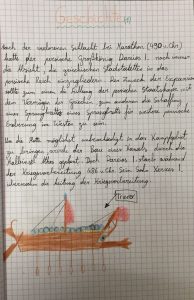 Geschichte
Nach der verlorenen Schlacht bei Marathon (490 v. Chr.)
hatte der persische Großkönig Dareios I. noch immer
die Absicht, die griechischen Stadtstaaten in das
persische Reich einzugliedern. Ein Zweck der Expansion
sollte zum einen die Füllung der persischen Staatskasse mit
dem Vermögen der Griechen zum anderen die Schaffung
eines Sprungbrettes für weitere persische
Eroberung im Westen zu sein.
Um die Flotte möglichst unbeschadigt in das Kampfgebiet
zu bringen, wurde der Bau eines Kanals, durch die
Halbinsel Athos geplant. Doch Dareios I. starb während
der Kriegsvorbereitung 486 v. Chr. Sein Sohn Xerxes I.
übernahm die Leitung der Kriegsvorbereitung.